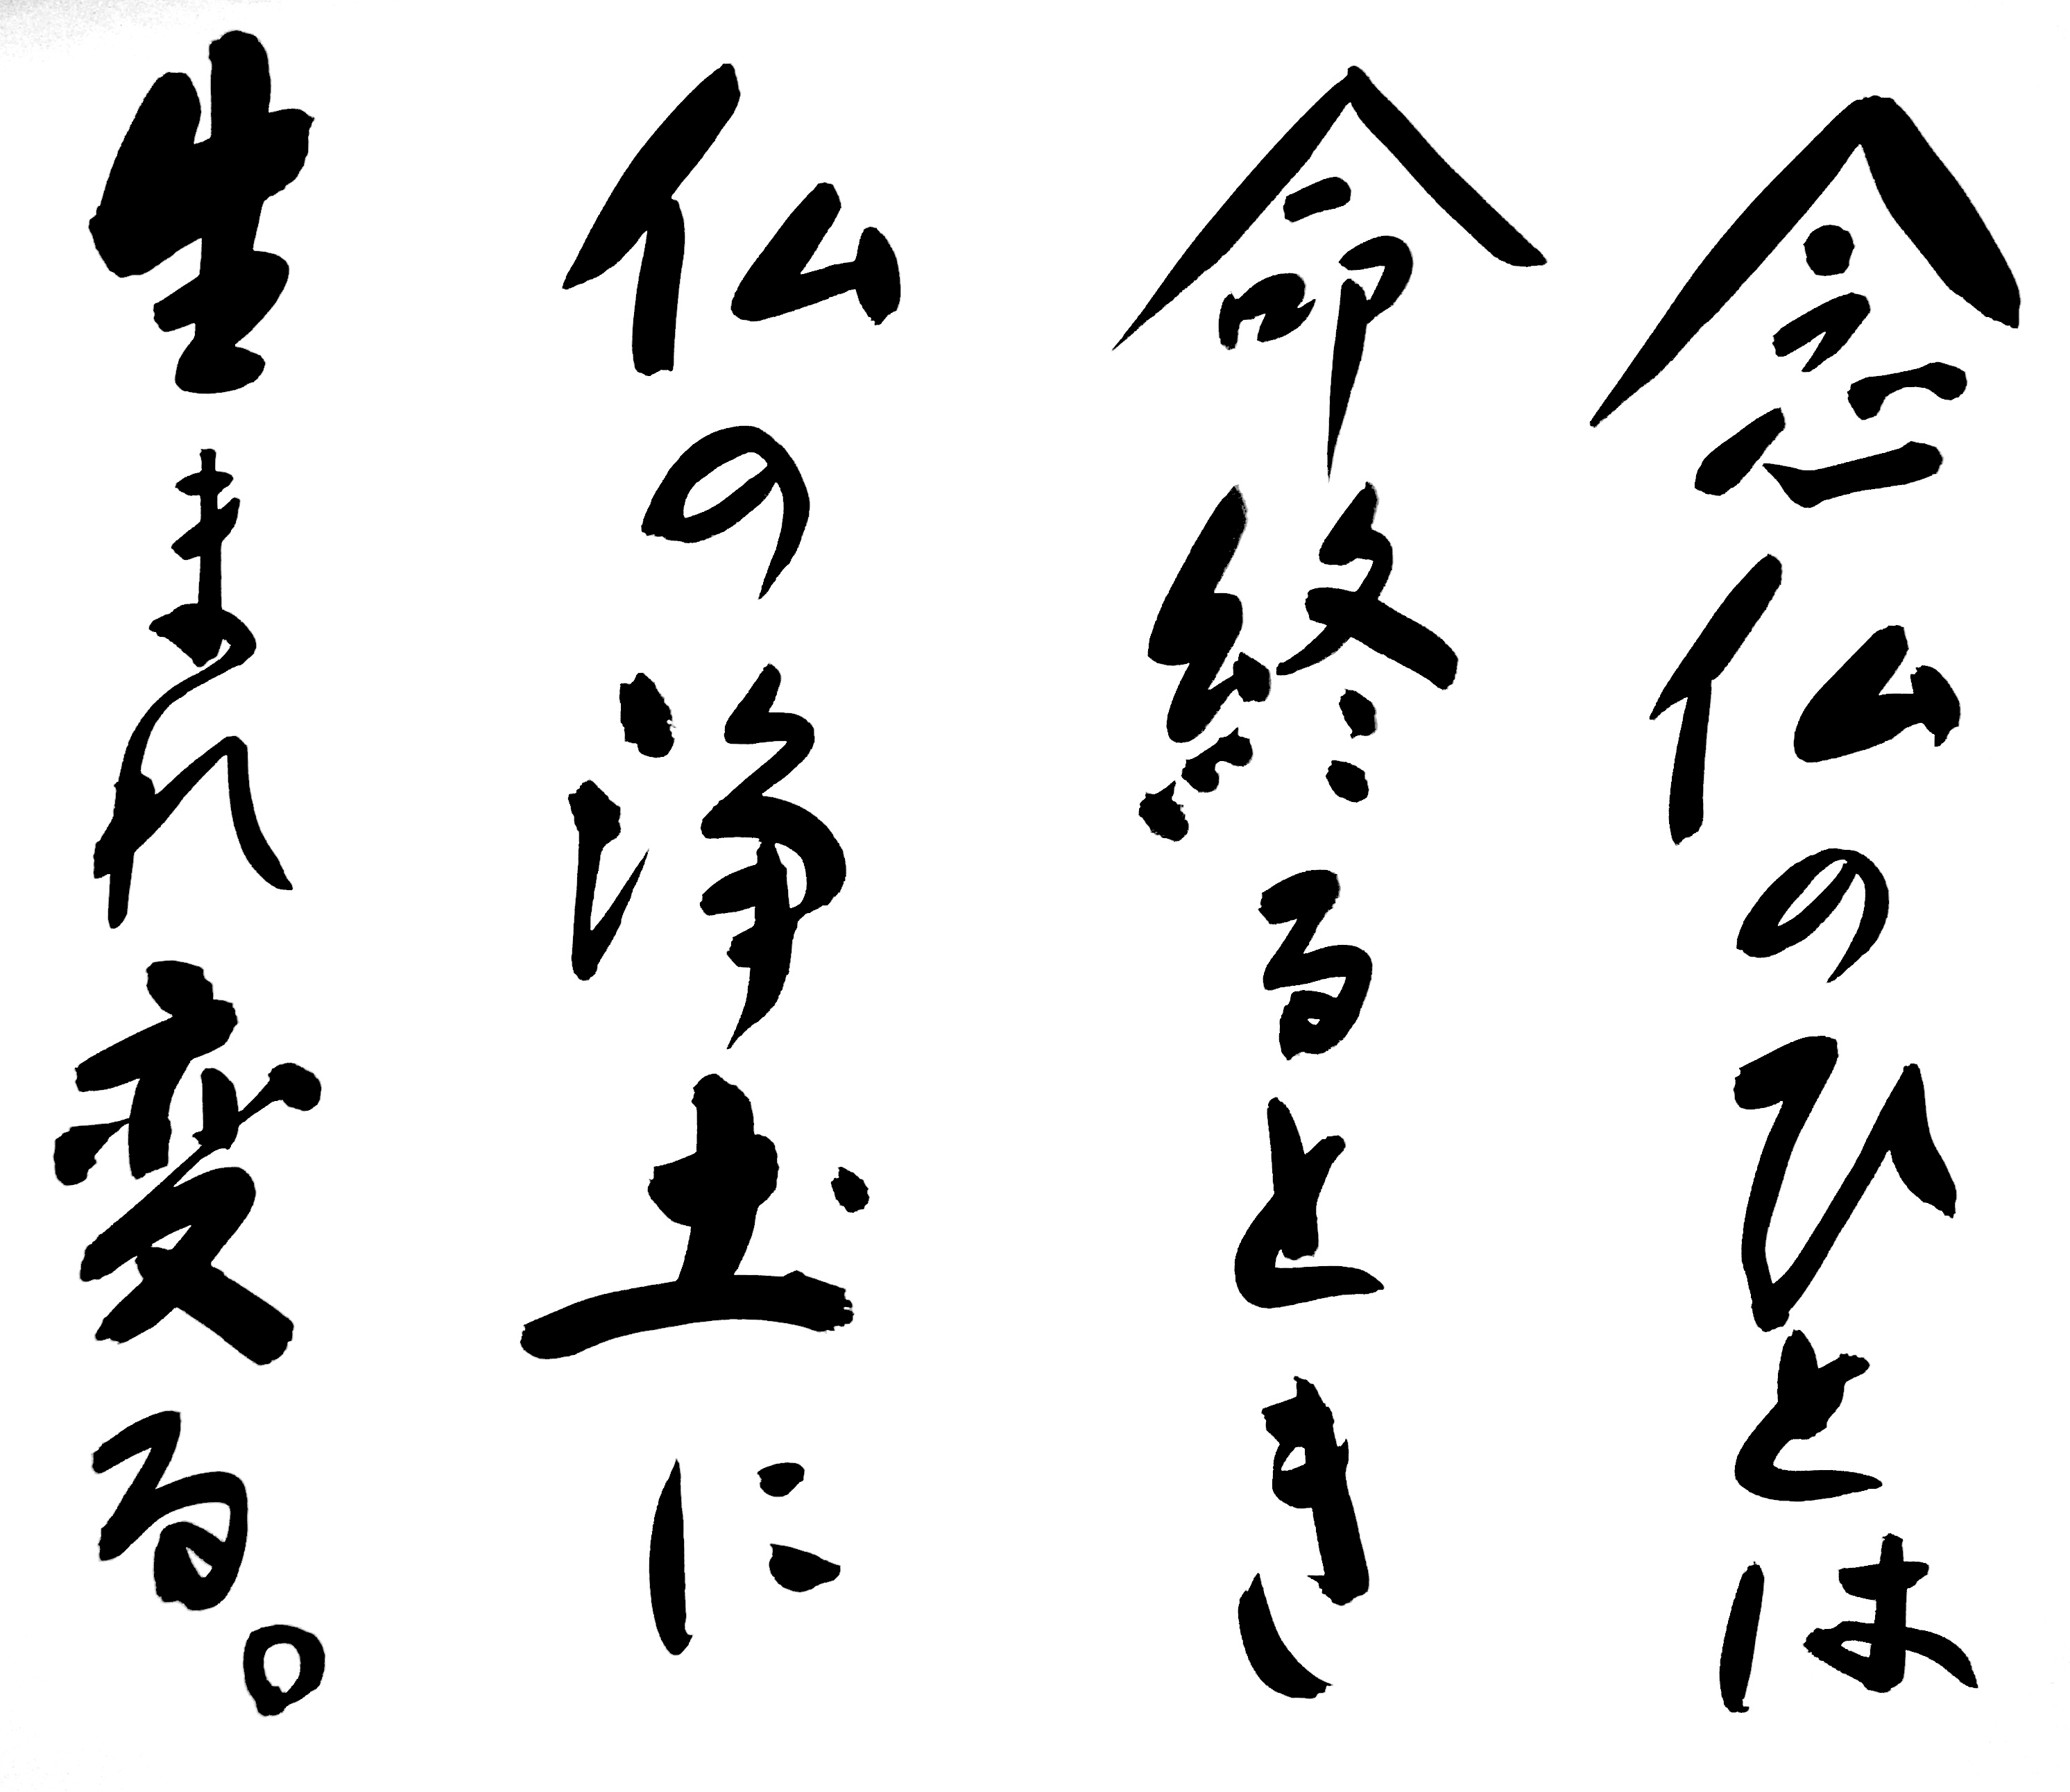 念仏のひとは
命終るとき
仏の浄土に
生まれ変る。